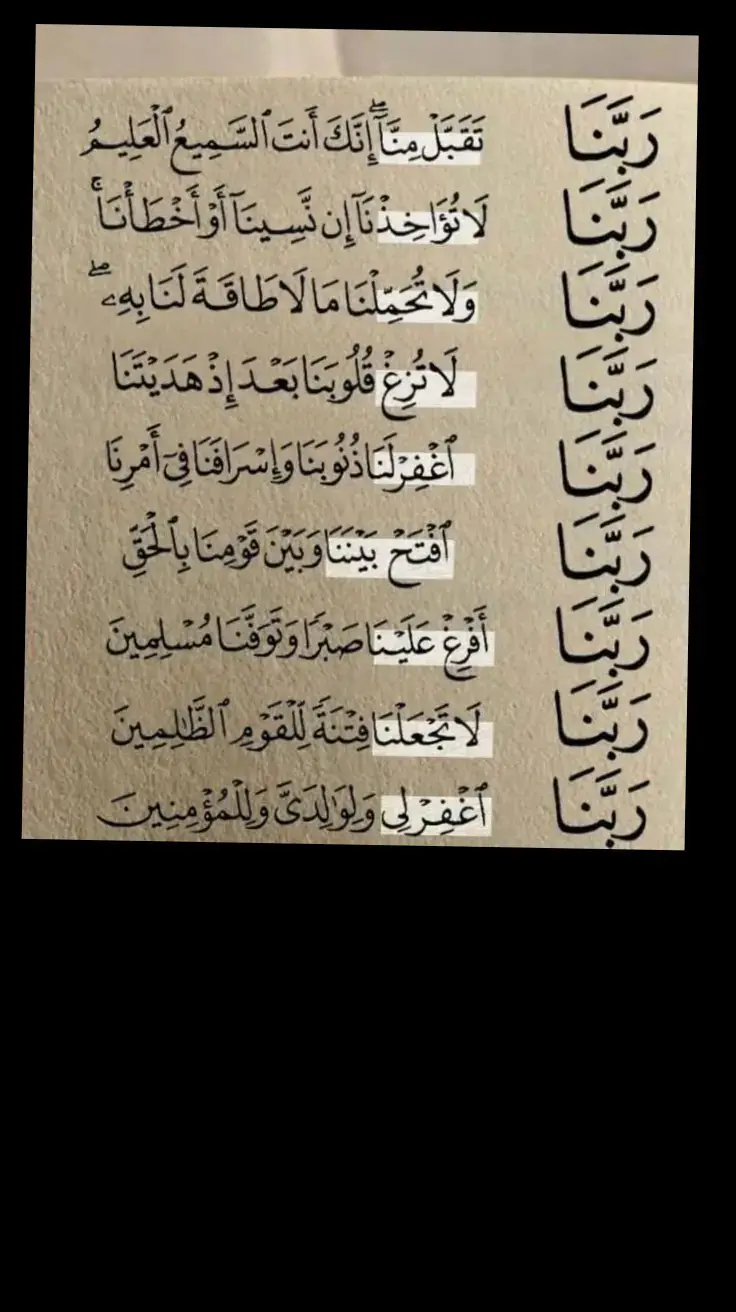 رَبَّنَا تَقَبَّلْ مِنَّآ ۖ إِنَّكَ أَنتَ ٱلسَّمِيعُ ٱلْعَلِيمُ
رَبَّنَا لَا تُؤَاخِذْنَآ إِن نَّسِينَآ أَوْ أَخْطَأْنَا ۚ
رَبَّنَا وَلَا تُحَمِّلْنَا مَا لَا طَاقَةَ لَنَا بِهِۦ ۖ
رَبَّنَا لَا تُزِغْ قُلُوبَنَا بَعْدَ إِذْ هَدَيْتَنَا
رَبَّنَا ٱغْفِرْ لَنَا ذُنُوبَنَا وَإِسْرَافَنَا فِىٓ أَمْرِنَا
رَبَّنَا ٱفْتَحْ بَيْنَنَا وَبَيْنَ قَوْمِنَا بِٱلْحَقِّ
رَبَّنَا أَفْرِغْ عَلَيْنَا صَبْرًا وَتَوَفَّنَا مُسْلِمِينَ
رَبَّنَا لَا تَجْعَلْنَا فِتْنَةً لِّلْقَوْمِ ٱلظَّٰلِمِينَ
رَبَّنَا ٱغْفِرْ لِى وَلِوَٰلِدَىَّ وَلِلْمُؤْمِنِينَ